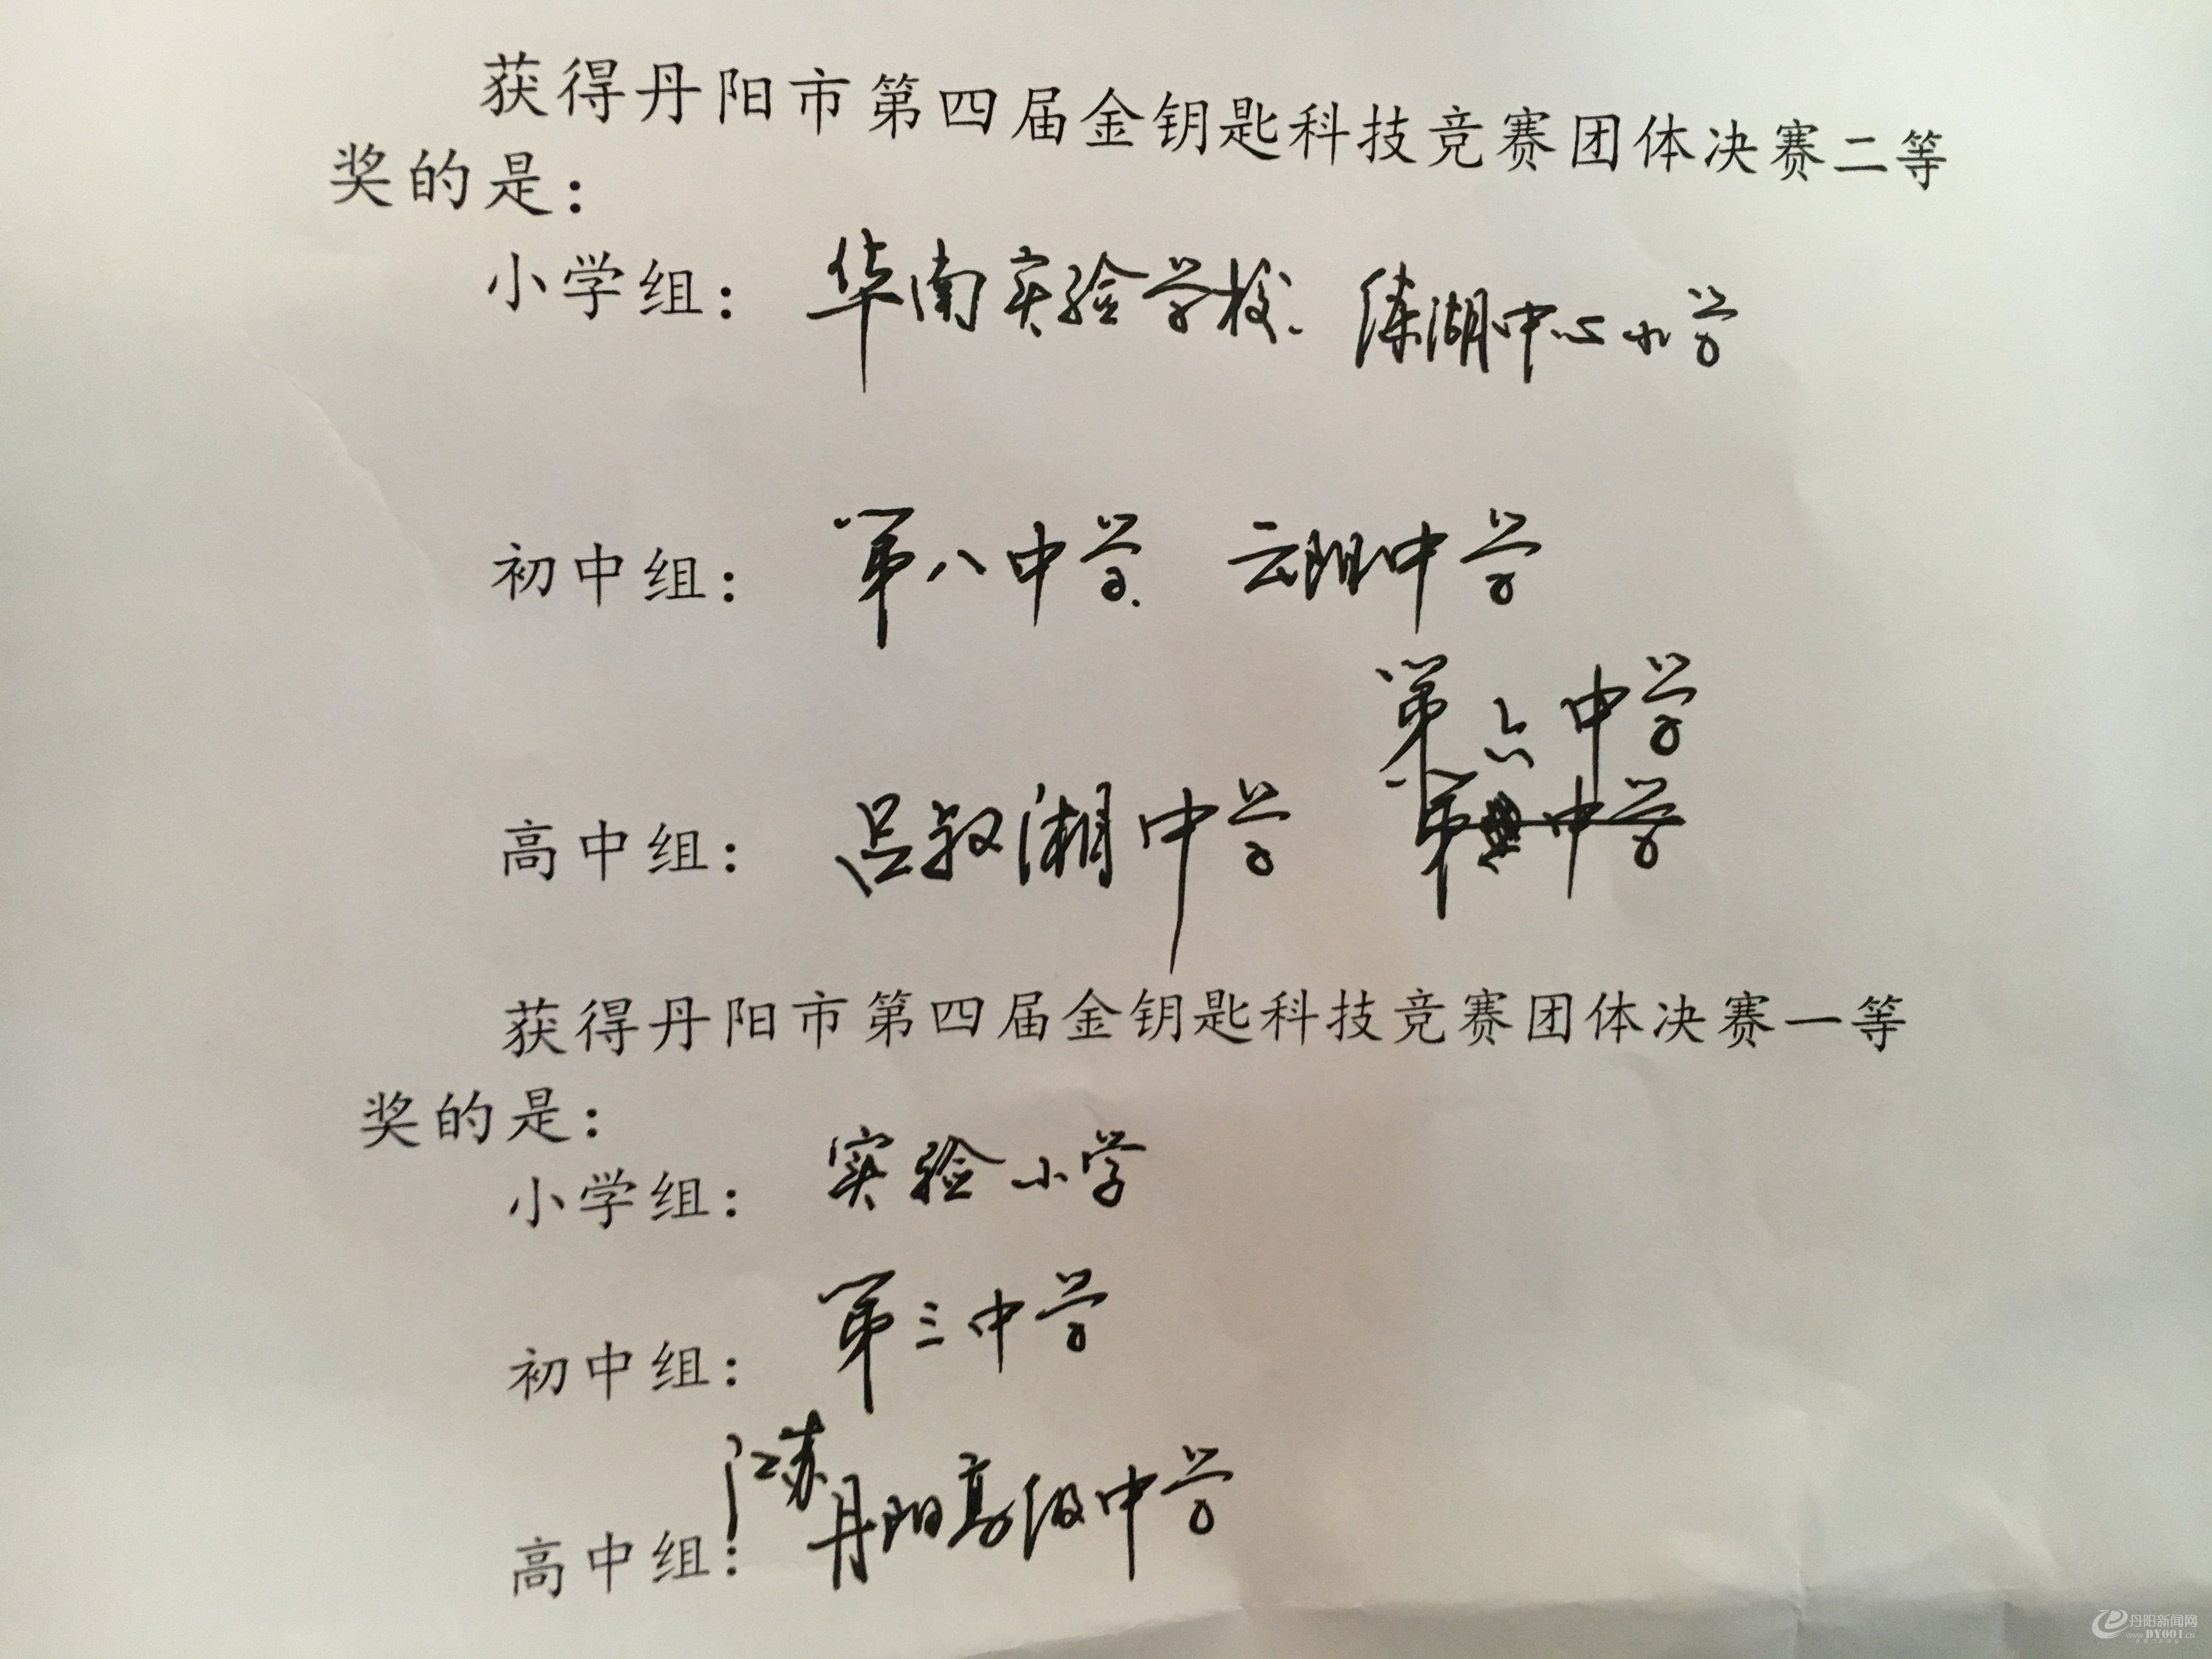 获得丹阳市第四届金钥匙科技竞赛团体决赛二等
奖的是：
小学组： 华南实验学校、练湖中心小学
初中组： 第八中学、云阳中学
第六中学
高中组： 吕叔湘中学 第中学
获得丹阳市第四届金钥匙科技竞赛团体决赛一等
奖的是：
小学组： 实验小学
初中组： 第三中学
江苏
高中组： 丹阳高级中学
丹阳新闻网
www.DY001.cn